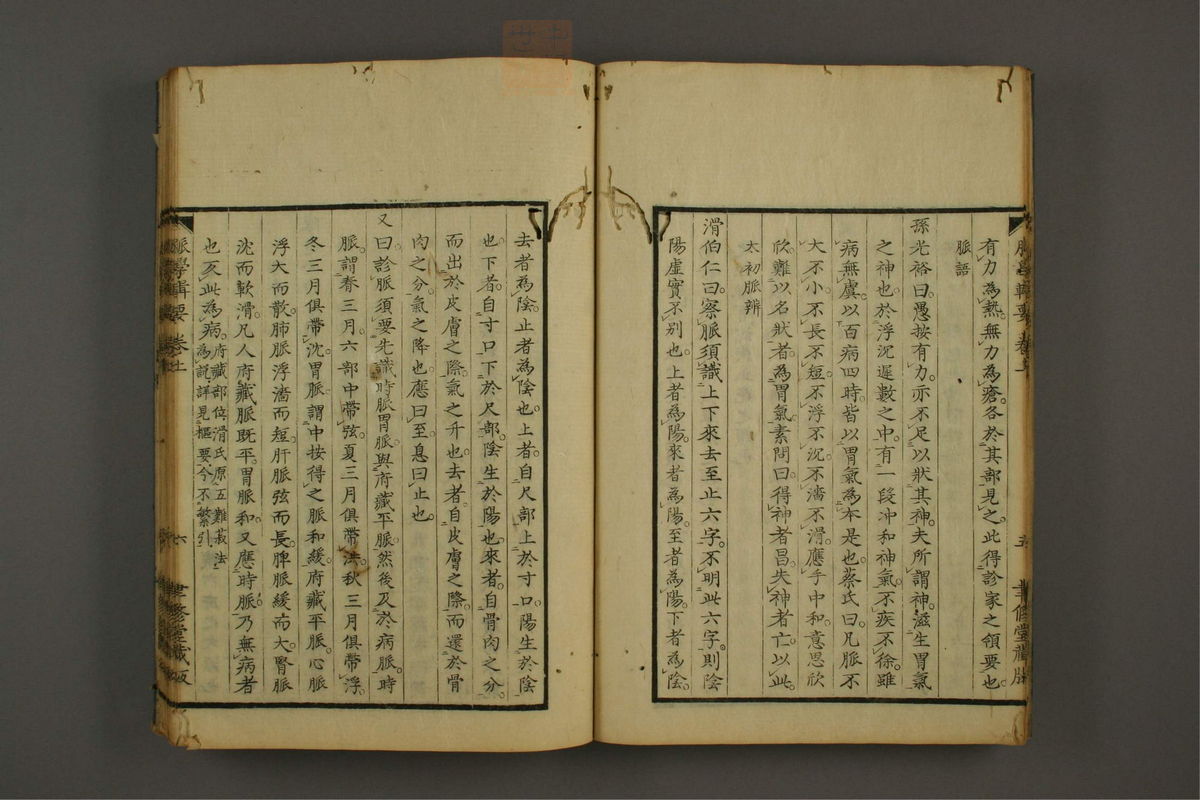 有力為熱。無力為瘡。各於其部見之。此得診家之領要也。
脈語
孫光裕曰。愚按有力亦不足以狀其神。夫所謂神。滋生胃氣
之神也。於浮沉遲數之中。有一段冲和神氣。不疾不徐。雖
病無虞。以百病四時皆以胃氣為本是也。蔡氏曰。凡脈不
大不小。不長不短。不浮不沉。不濇不滑。應手中和。意思欣
欣。難以名狀者。為胃氣。素問曰。得神者昌。失神者亡。以此。
太初脈辨
滑伯仁曰。察脈須識上下來去至止六字。不明此六字。則陰
陽虛實不別也。上者為陽。來者為陽。至者為陽。下者為陰。
脈學輯要 卷上
五
聿修堂藏版
去者為陰。止者為陰也。上者。自尺部上於寸口。陽生於陰
也。下者。自寸口下於尺部。陰生於陽也。來者。自骨肉之分。
而出於皮膚之際。氣之升也。去者。自皮膚之際。而還於骨
肉之分。氣之降也。應曰至。息曰止也。
又曰。診脈須要先識時脈胃脈。與府藏平脈。然後及於病脈。時
脈。謂春三月。六部中帶弦。夏三月俱帶洪。秋三月俱帶浮。
冬三月俱帶沈。胃脈。謂中按得之。脈和緩。府藏平脈。心脈
浮大而散。肺脈浮濇而短。肝脈弦而長。脾脈緩而大。腎脈
沈而軟滑。凡人府藏脈既平。胃脈和。又應時脈。乃無病者
也。反此為病。府藏部位滑氏原五難菽法
為說。詳見樞要。今不繁引。
脈學輯要 卷上
六
聿修堂藏版